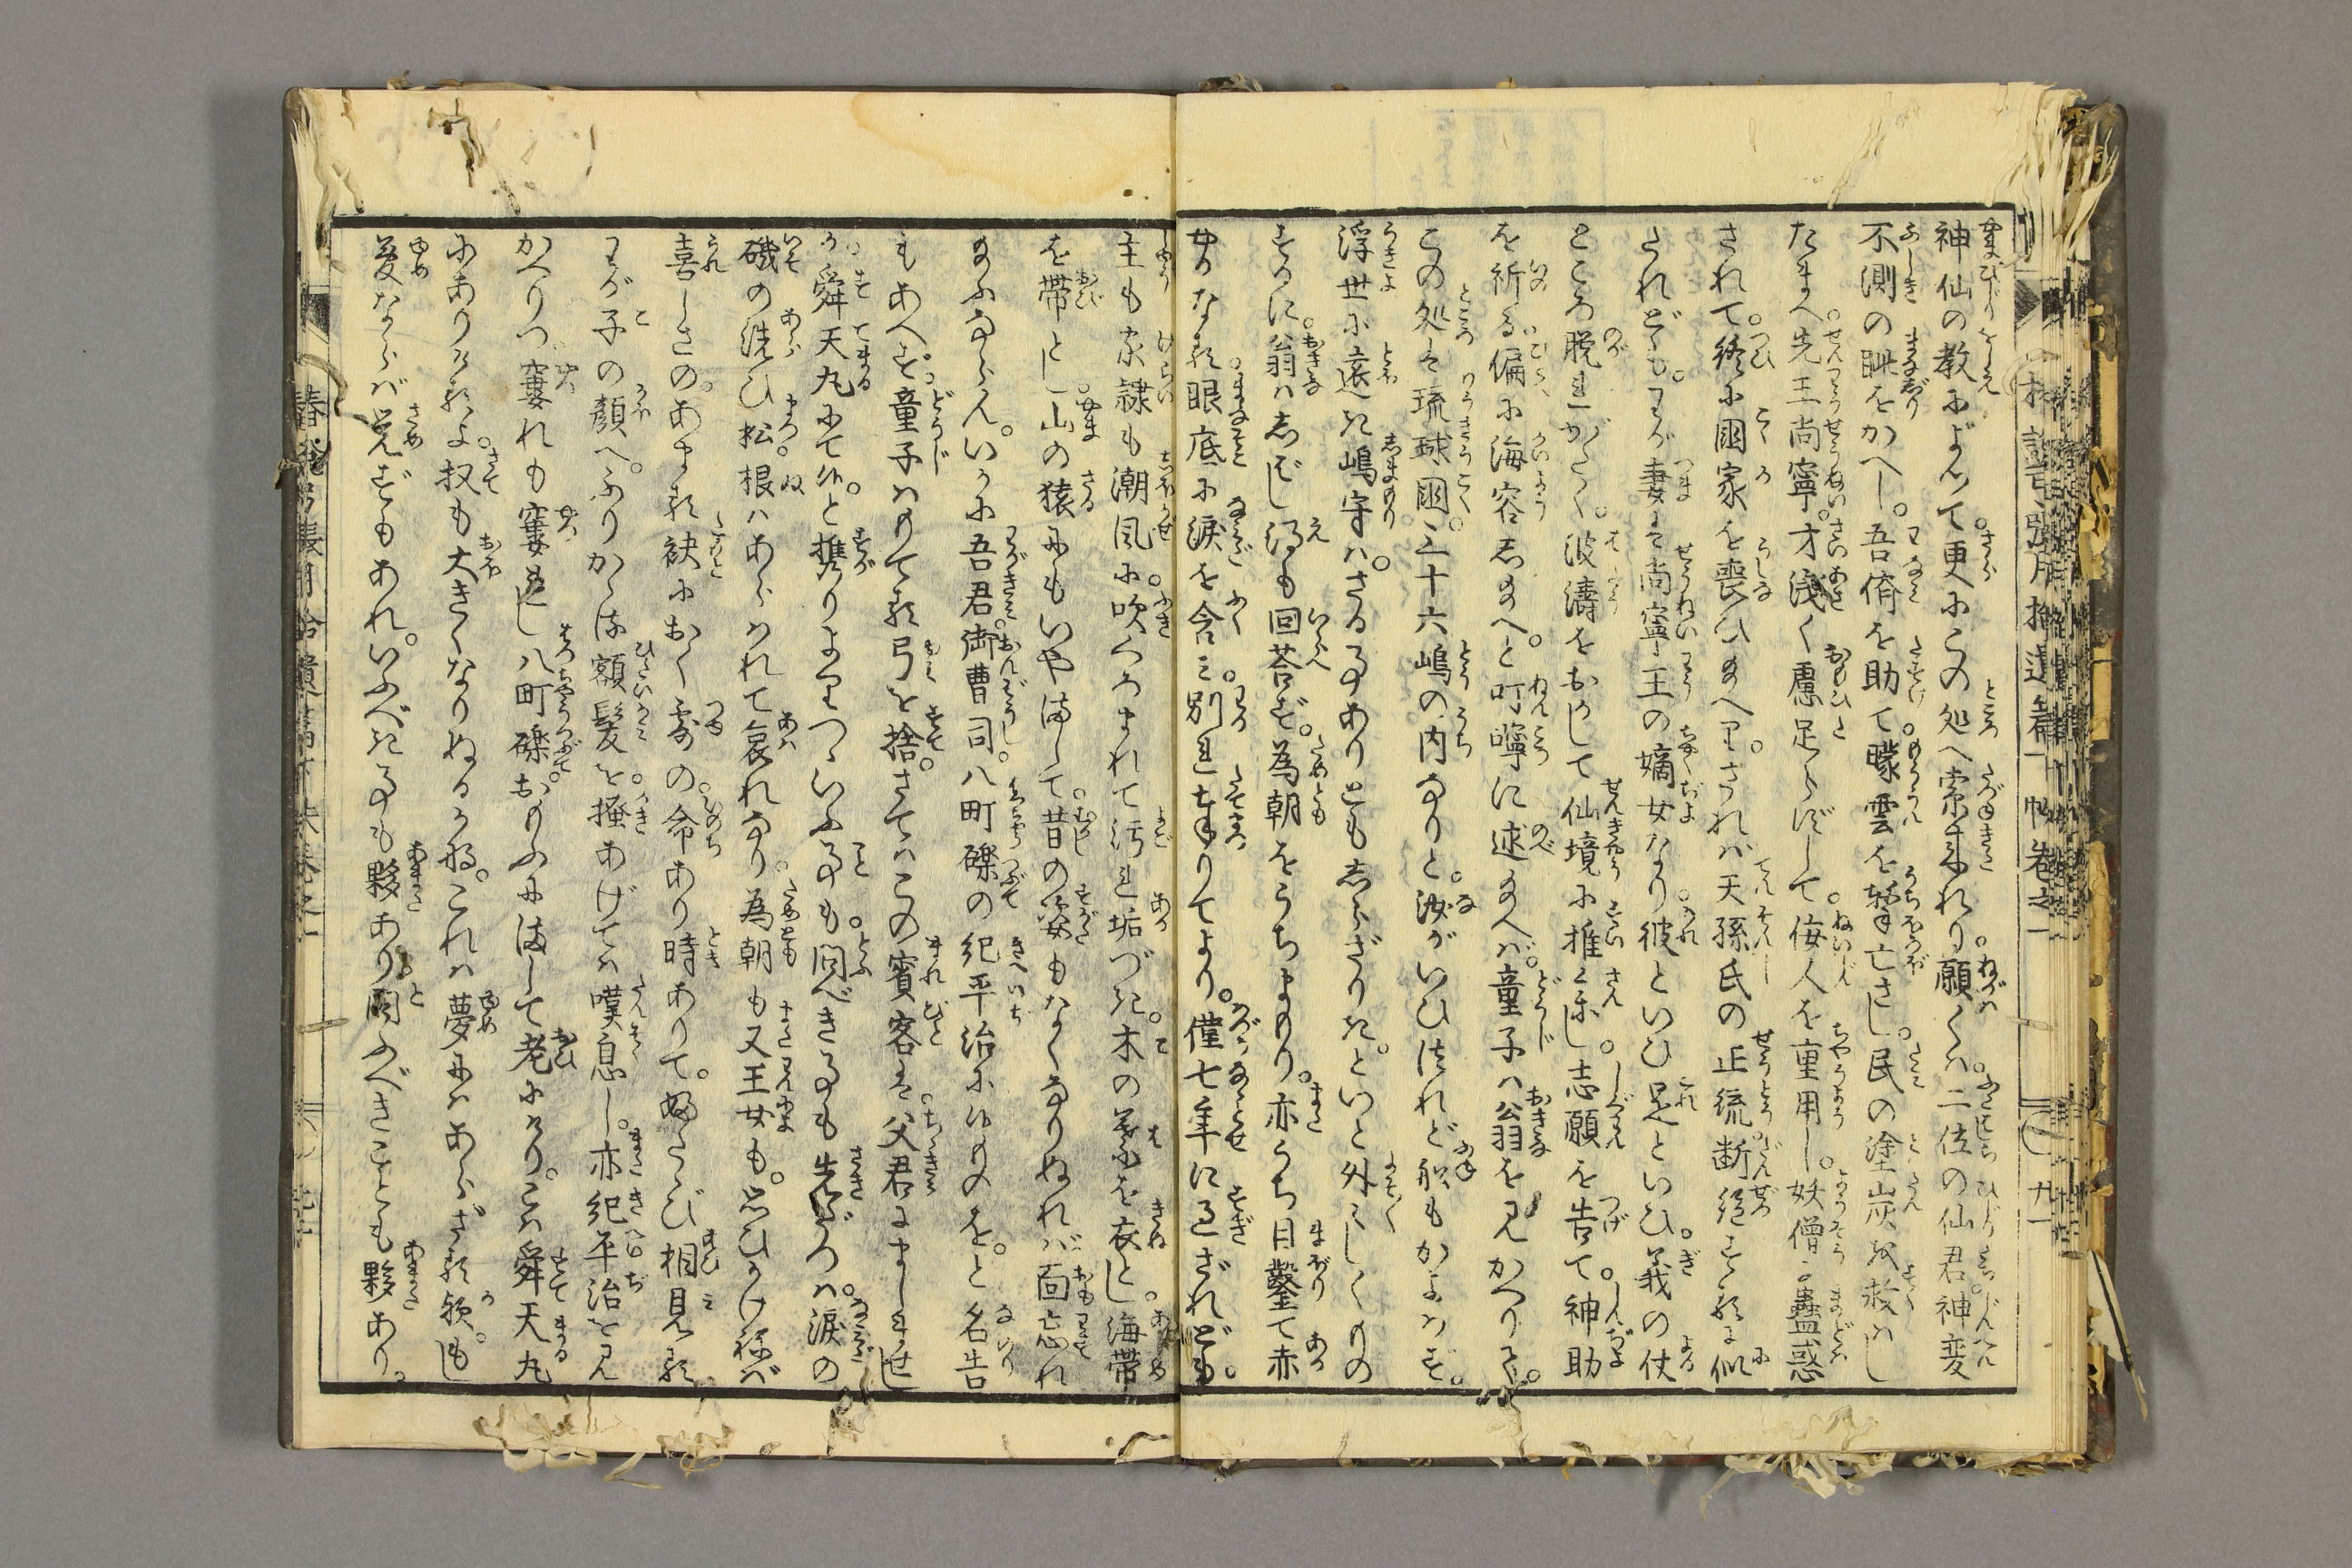 神仙の教によつて。更にこの処へ索来れり。願くは。二位の仙君。神変
不測の眦をかへし。吾儕を助て。曚雲を撃亡さし。民の塗炭を救はし
たまへ。先王尚寧。才浅く慮足らずして。侫人を重用し。妖僧に蠱惑
されて。終に國家を喪ひ給へり。されば天孫氏の正統断絶するに似
たれども。わが妻は尚寧王の嫡女なり。彼といひ是といひ。義の仗
ところ脱れがたく。波濤をおかして仙境に推参し。志願を告て。神助
を祈る。偏に海容し給へ。と叮嚀に述給へば。童子は翁を見かへりて。
この処は琉球國。三十六嶋の内なりと。汝がいひつれど。船もかよはず。
浮世に遠き嶋守は。さる事ありとも しらざりき。といと外々しくもの
するに。翁はしばし得も回荅ず。為朝をうちまもり。亦うち目鑿て赤
女な る眼底に涙を含み。別れまゐりてより。僅七年に過ざれども。
主も家隷も潮風に。吹くろまれて汚れ垢づき。木の葉を衣とし。海帯
を帯とし。山の猿にもいやまして。昔の姿もなくなりぬれば。面忘れ
給ふならん。いかに吾君。御曹司。八町礫の紀平治に候ものを。と名告
もあへず。童子はもてる弓を捨。さてはこの賓客は。父君にましませし
か。舜天丸にて候。と携りよりつゝいふ事も。問べき事も先だつは。涙の
磯の洗ひ松。根はあらはれて哀れなり。為朝も又王女も。思ひかけねば
喜しさの。あまる袂におく露の。命あり時ありて。ふたゝび相見る
わが子の顔へ。ふりかゝる額髪を。掻あげては嘆息し。亦紀平治を見
かへりつ。窶れも窶れし八町礫。おもふにまして老にけり。こは舜天丸
にありけるよ。扨も大きくなりぬるかな。これは夢にはあらざる歟。もし
夢ならば覚ずもあれ。いふべき事も夥あり。問ふべきことも夥あり。